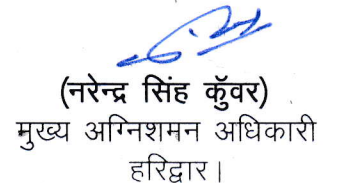 (नरेन्द्र सिंह कुॅवर)
मुख्य अग्निशमन अधिकारी
हरिद्वार।